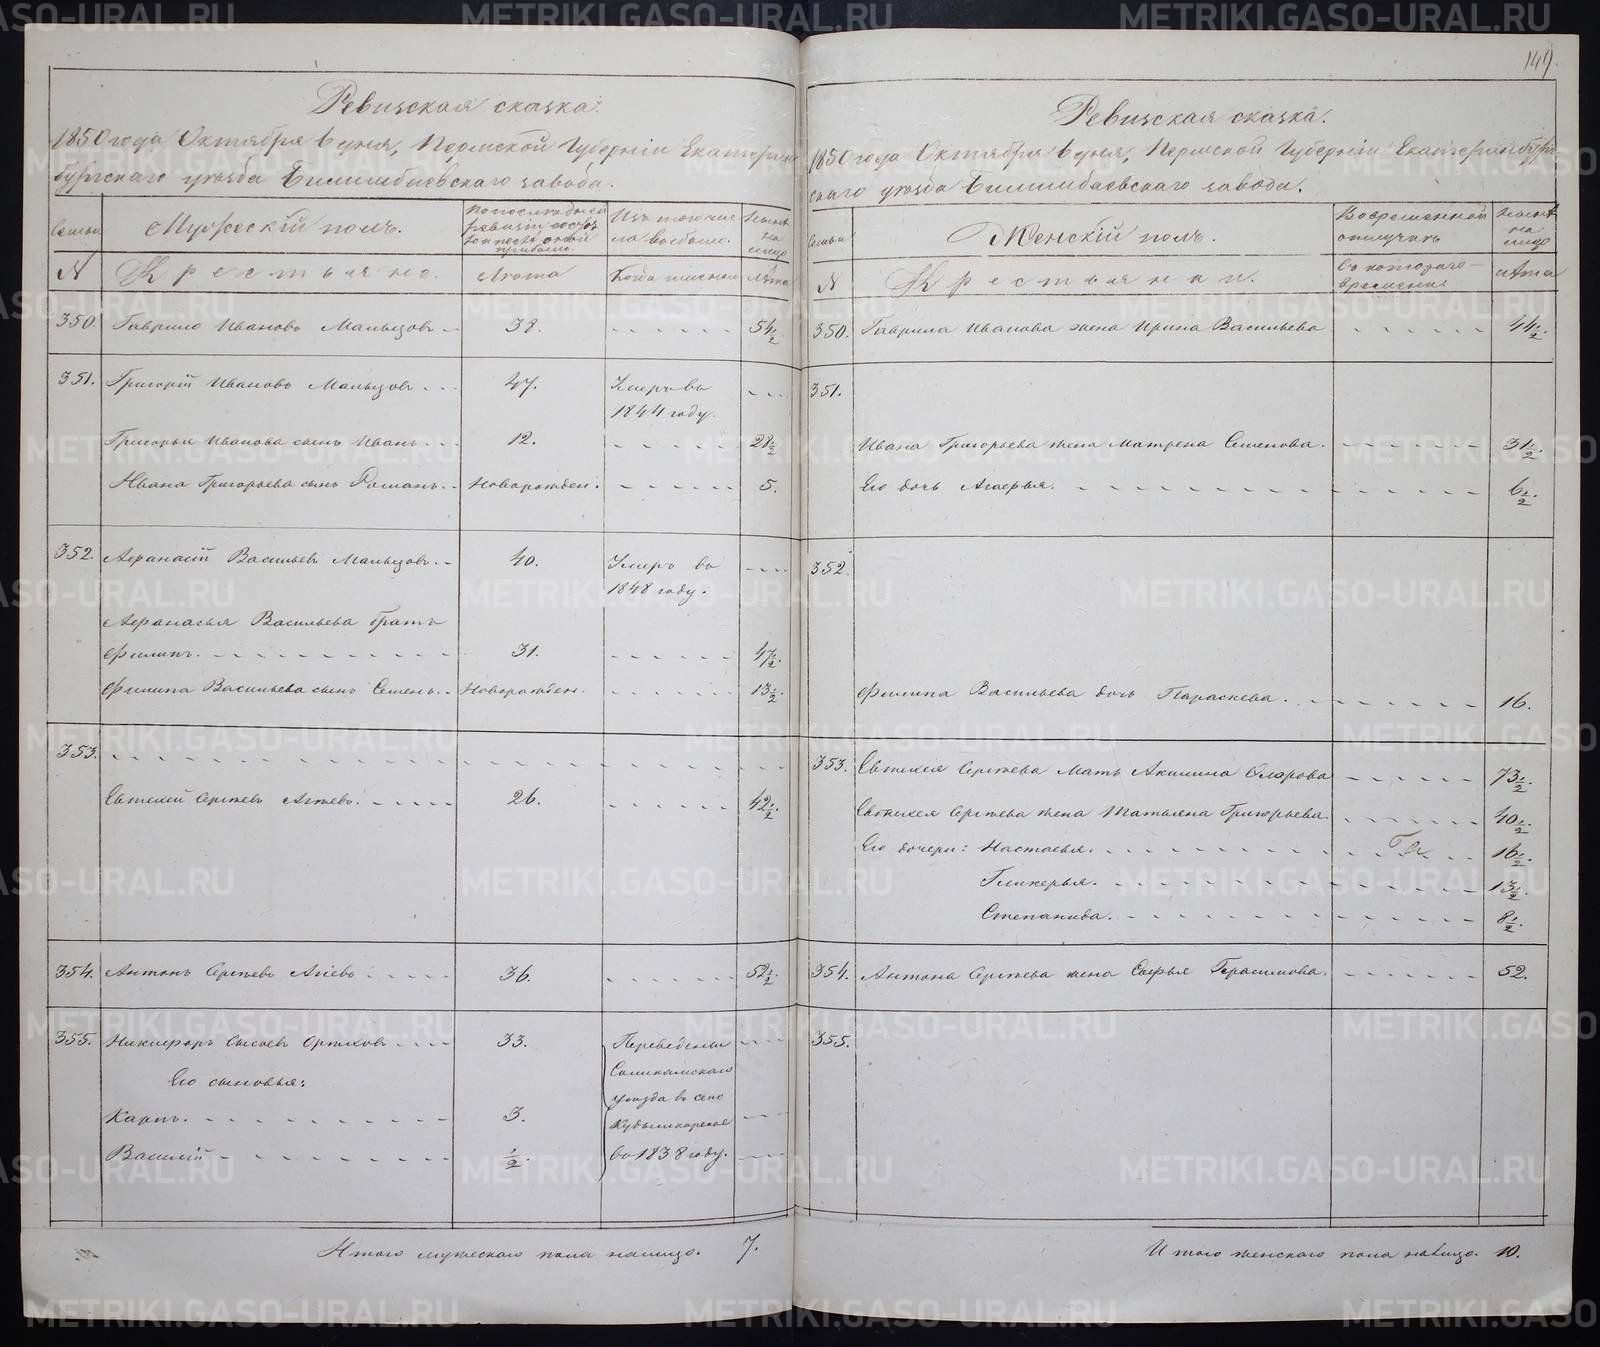 149.
Ревизская сказка.
1850 года Октября 6 дня, Пермской Губернiи Екатерин-
бургскаго уѣзда Билимбаевскаго завода.
Семьи
Мужескiй полъ.
По последней ревизiи состояло и после оной прибыло.
Изъ того числа выбыло.
Ныне на лицо
N
Крестьяне.
Лѣта
Когда именно
Лѣта
350. Гаврило Ивановъ Мальцовъ 38. 54½
351. Григорiй Ивановъ Мальцовъ 47. Умеръ въ
1844 году.
Григорья Иванова сынъ Иванъ 12. 28½
Ивана Григорьева сынъ Романъ Новорожден. 5.
352. Афанасiй Васильевъ Мальцовъ 40. Умеръ въ
1848 году.
Афанасья Васильева братъ
Филипъ. 31. 47½.
Филипа Васильева сынъ Семенъ. Новорожден. 13½.
353.
Евтихей Сергѣевъ Агѣевъ. 26. 42½.
354. Антонъ Сергѣевъ Агѣевъ 36. 52½.
355. Никифоръ Сысоевъ 33. Переведены
Его сыновья: Соликамскаго
уѣзда въ село
Карпъ. 3. Кудымкорское
Василiй ½. въ 1838 году.
Итого мужескаго пола налицо. 7.
Ревизская сказка.
1850 года Октября 6 дня, Пермской Губернiи Екатеринбург-
скаго уѣзда Билимбаевскаго завода.
Семьи
Женскiй полъ.
Во временной отлучкѣ
Ныне на лицо
N
Крестьянки.
Съ котораго времени
Лѣта
350. Гаврила Иванова жена Ирина Васильева 44½.
351.
Ивана Григорьева жена Матрена Семенова. 31½.
Его дочь 6½.
352.
Филипа Васильева дочь Параскева. 16.
353. Евтихея Сергѣева Мать Акилина 73½.
Евтихея Сергѣева жена Татьяна Григорьева. 40½.
Его дочери: Настасья. 16½.
Гликерья. 13½.
Степанида. 8½.
354. Антона Сергѣева жена Софья Герасимова. 52.
355.
Итого женскаго пола налицо. 10.
METRIKI.GASO-URAL.RU